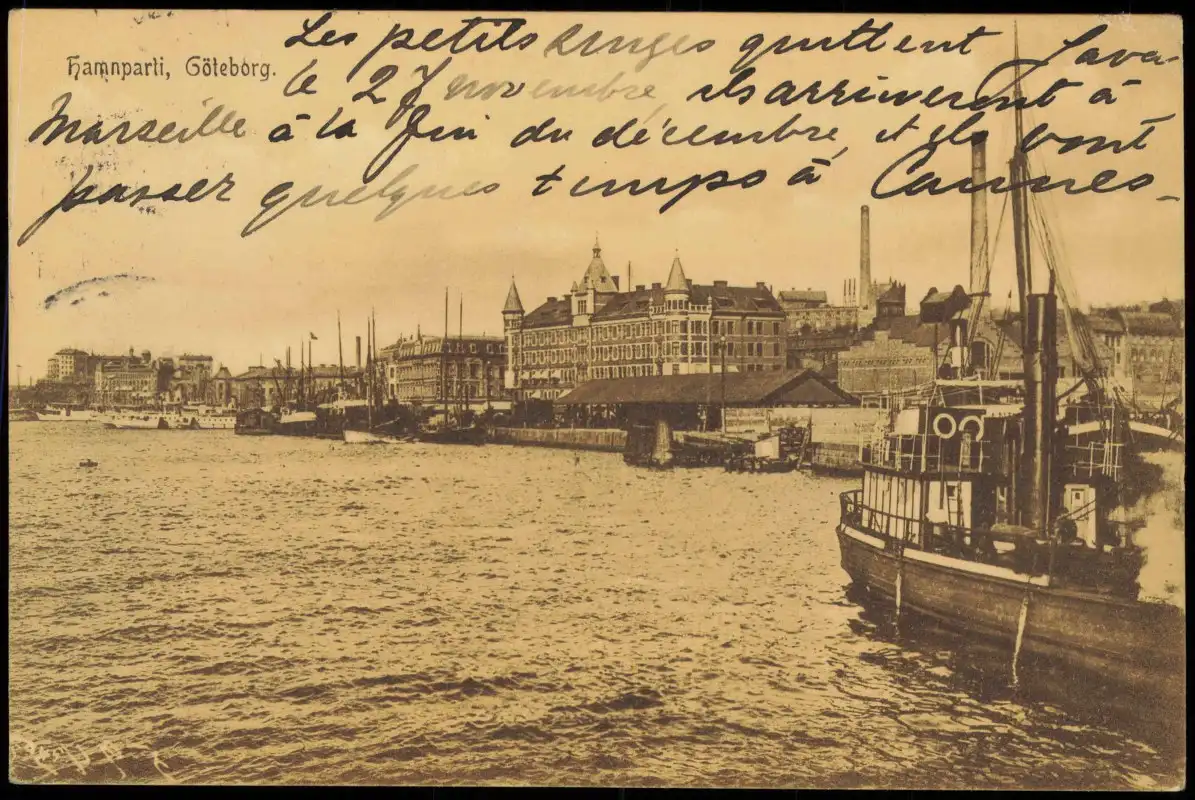 Hamnparti, Göteborg.
Les petits singes quittent Java
le 27 novembre, ils arriveront à
Marseille à la fin du décembre, et ils vont
passer quelques temps à Cannes_